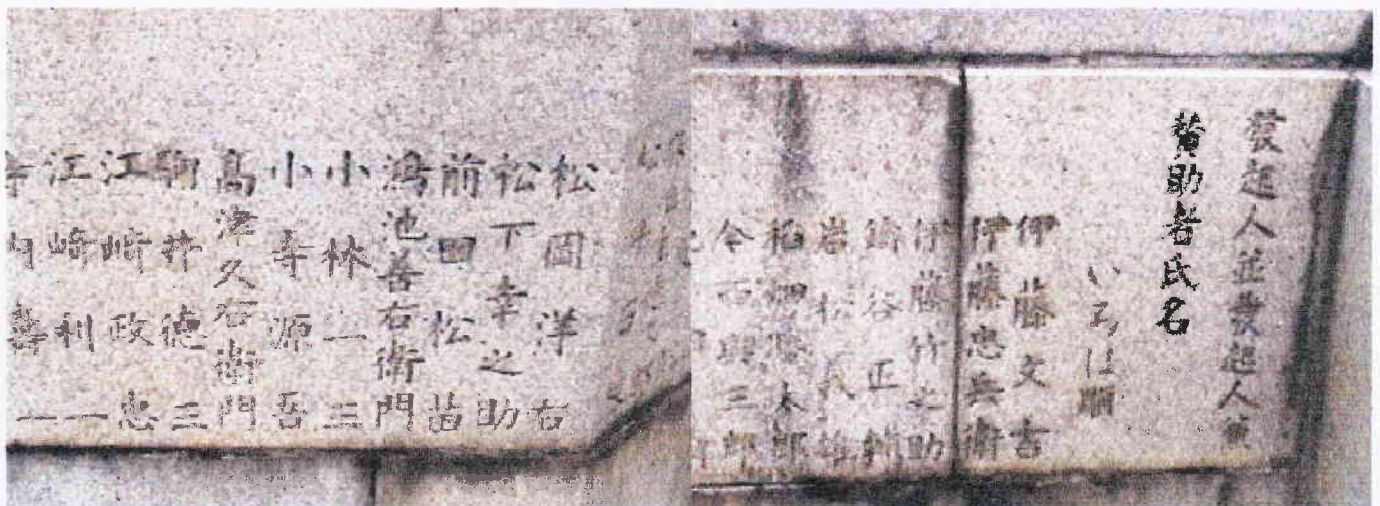 發起人並發起人
賛助者氏名
いろは順
伊藤文吉
伊藤忠兵衛
伊藤竹之助
鑄谷正輔
岩松義雄
稲畑勝太郎
今西與三郎
松岡洋右
松下幸之助
前田松苗
鴻池善右衛門
小林一三
小寺源吾
髙津久右衛門
駒井德三
江崎政忠
江崎利一
寺内壽一